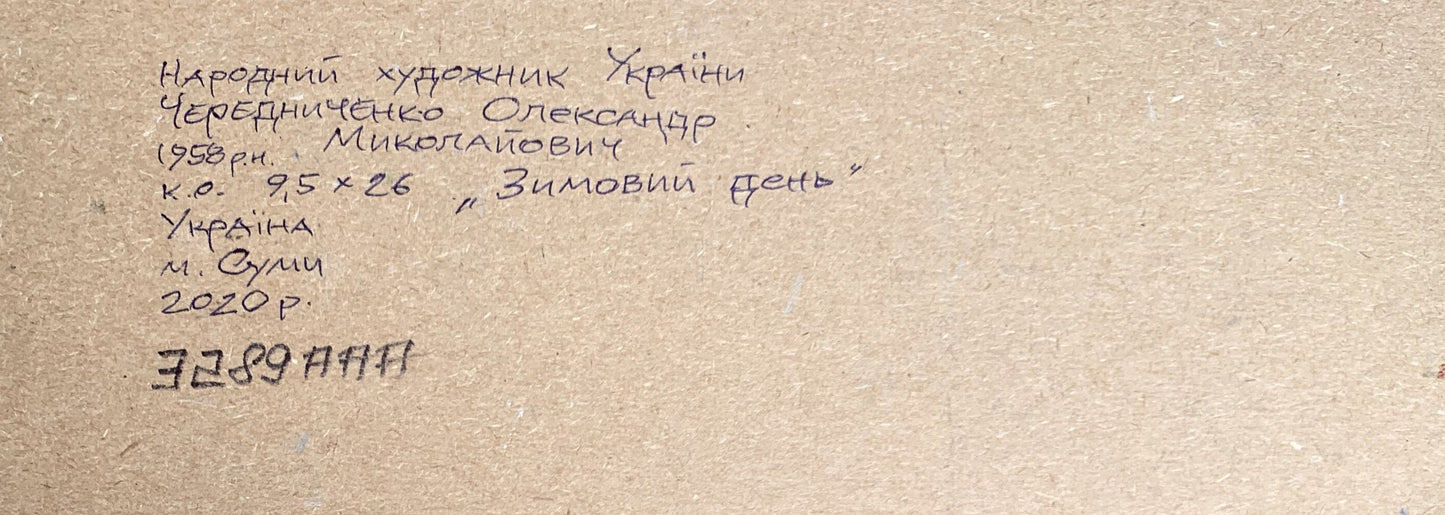 Народний художник України
Чередниченко Олександр
Миколайович
1958 р.н.
к.о. 9,5 × 26 „Зимовий день"
Україна
м. Суми
2020 р.
3289AAA